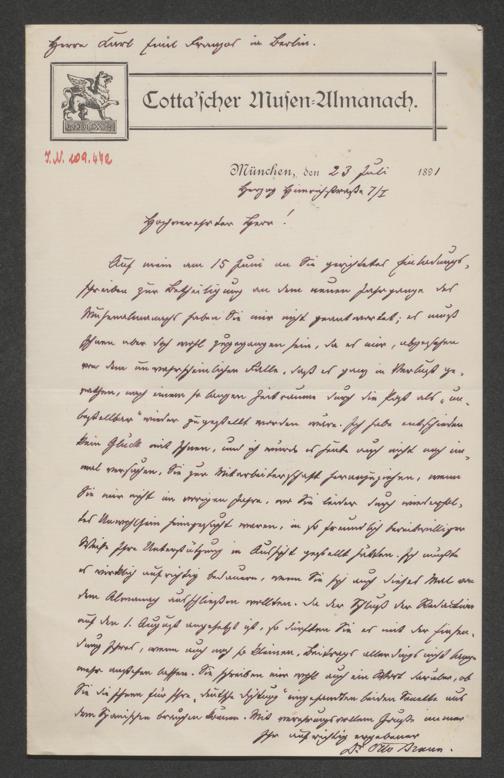 Herrn Karl Emil Franzos in Berlin.
Cotta'scher Musen-Almanach.
J.N. 209.442
München, den 23 Juli 1891
Herzog Heinrichstraße 7/I
Hochverehrter Herr!
Auf mein am 15 Juni an Sie gerichtetes Einladungs-
schreiben zur Betheiligung an dem neuen Jahrgange des
Musenalmanachs haben Sie mir nicht geantwortet; es muß
Ihnen aber doch wohl zugegangen sein, da es mir, abgesehen
von dem unwahrscheinlichen Falle, daß es ganz in Verlust ge-
rathen, nach einem so langen Zeitraume durch die Post als „un-
bestellbar" wieder zugestellt worden wäre. Ich habe entschieden
kein Glück mit Ihnen, und ich würde es heute auch nicht noch ein-
mal versuchen, Sie zur Mitarbeiterschaft heranzuziehen, wenn
Sie mir nicht im vorigen Jahre, wo Sie leider durch wiederhol-
tes Unwohlsein heimgesucht waren, in so freundlich bereitwilliger
Weise Ihre Unterstützung in Aussicht gestellt hätten. Ich müßte
es wirklich aufrichtig bedauern, wenn Sie sich auch dieses Mal von
dem Almanach ausschließen wollten. Da der Schluß der Redaction
auf den 1. August angesetzt ist, so dürften Sie es mit der Einsen-
dung Ihres, wenn auch noch so kleinen, Beitrags allerdings nicht lange
mehr anstehen lassen. Sie schreiben mir wohl auch ein Wort darüber, ob
Sie die Ihnen für Ihre „Deutsche Dichtung" eingesandten beiden Sonette aus
dem Spanischen brauchen können. Mit verehrungsvollem Gruße immer
Ihr aufrichtig ergebener
Dr. Otto Braun.